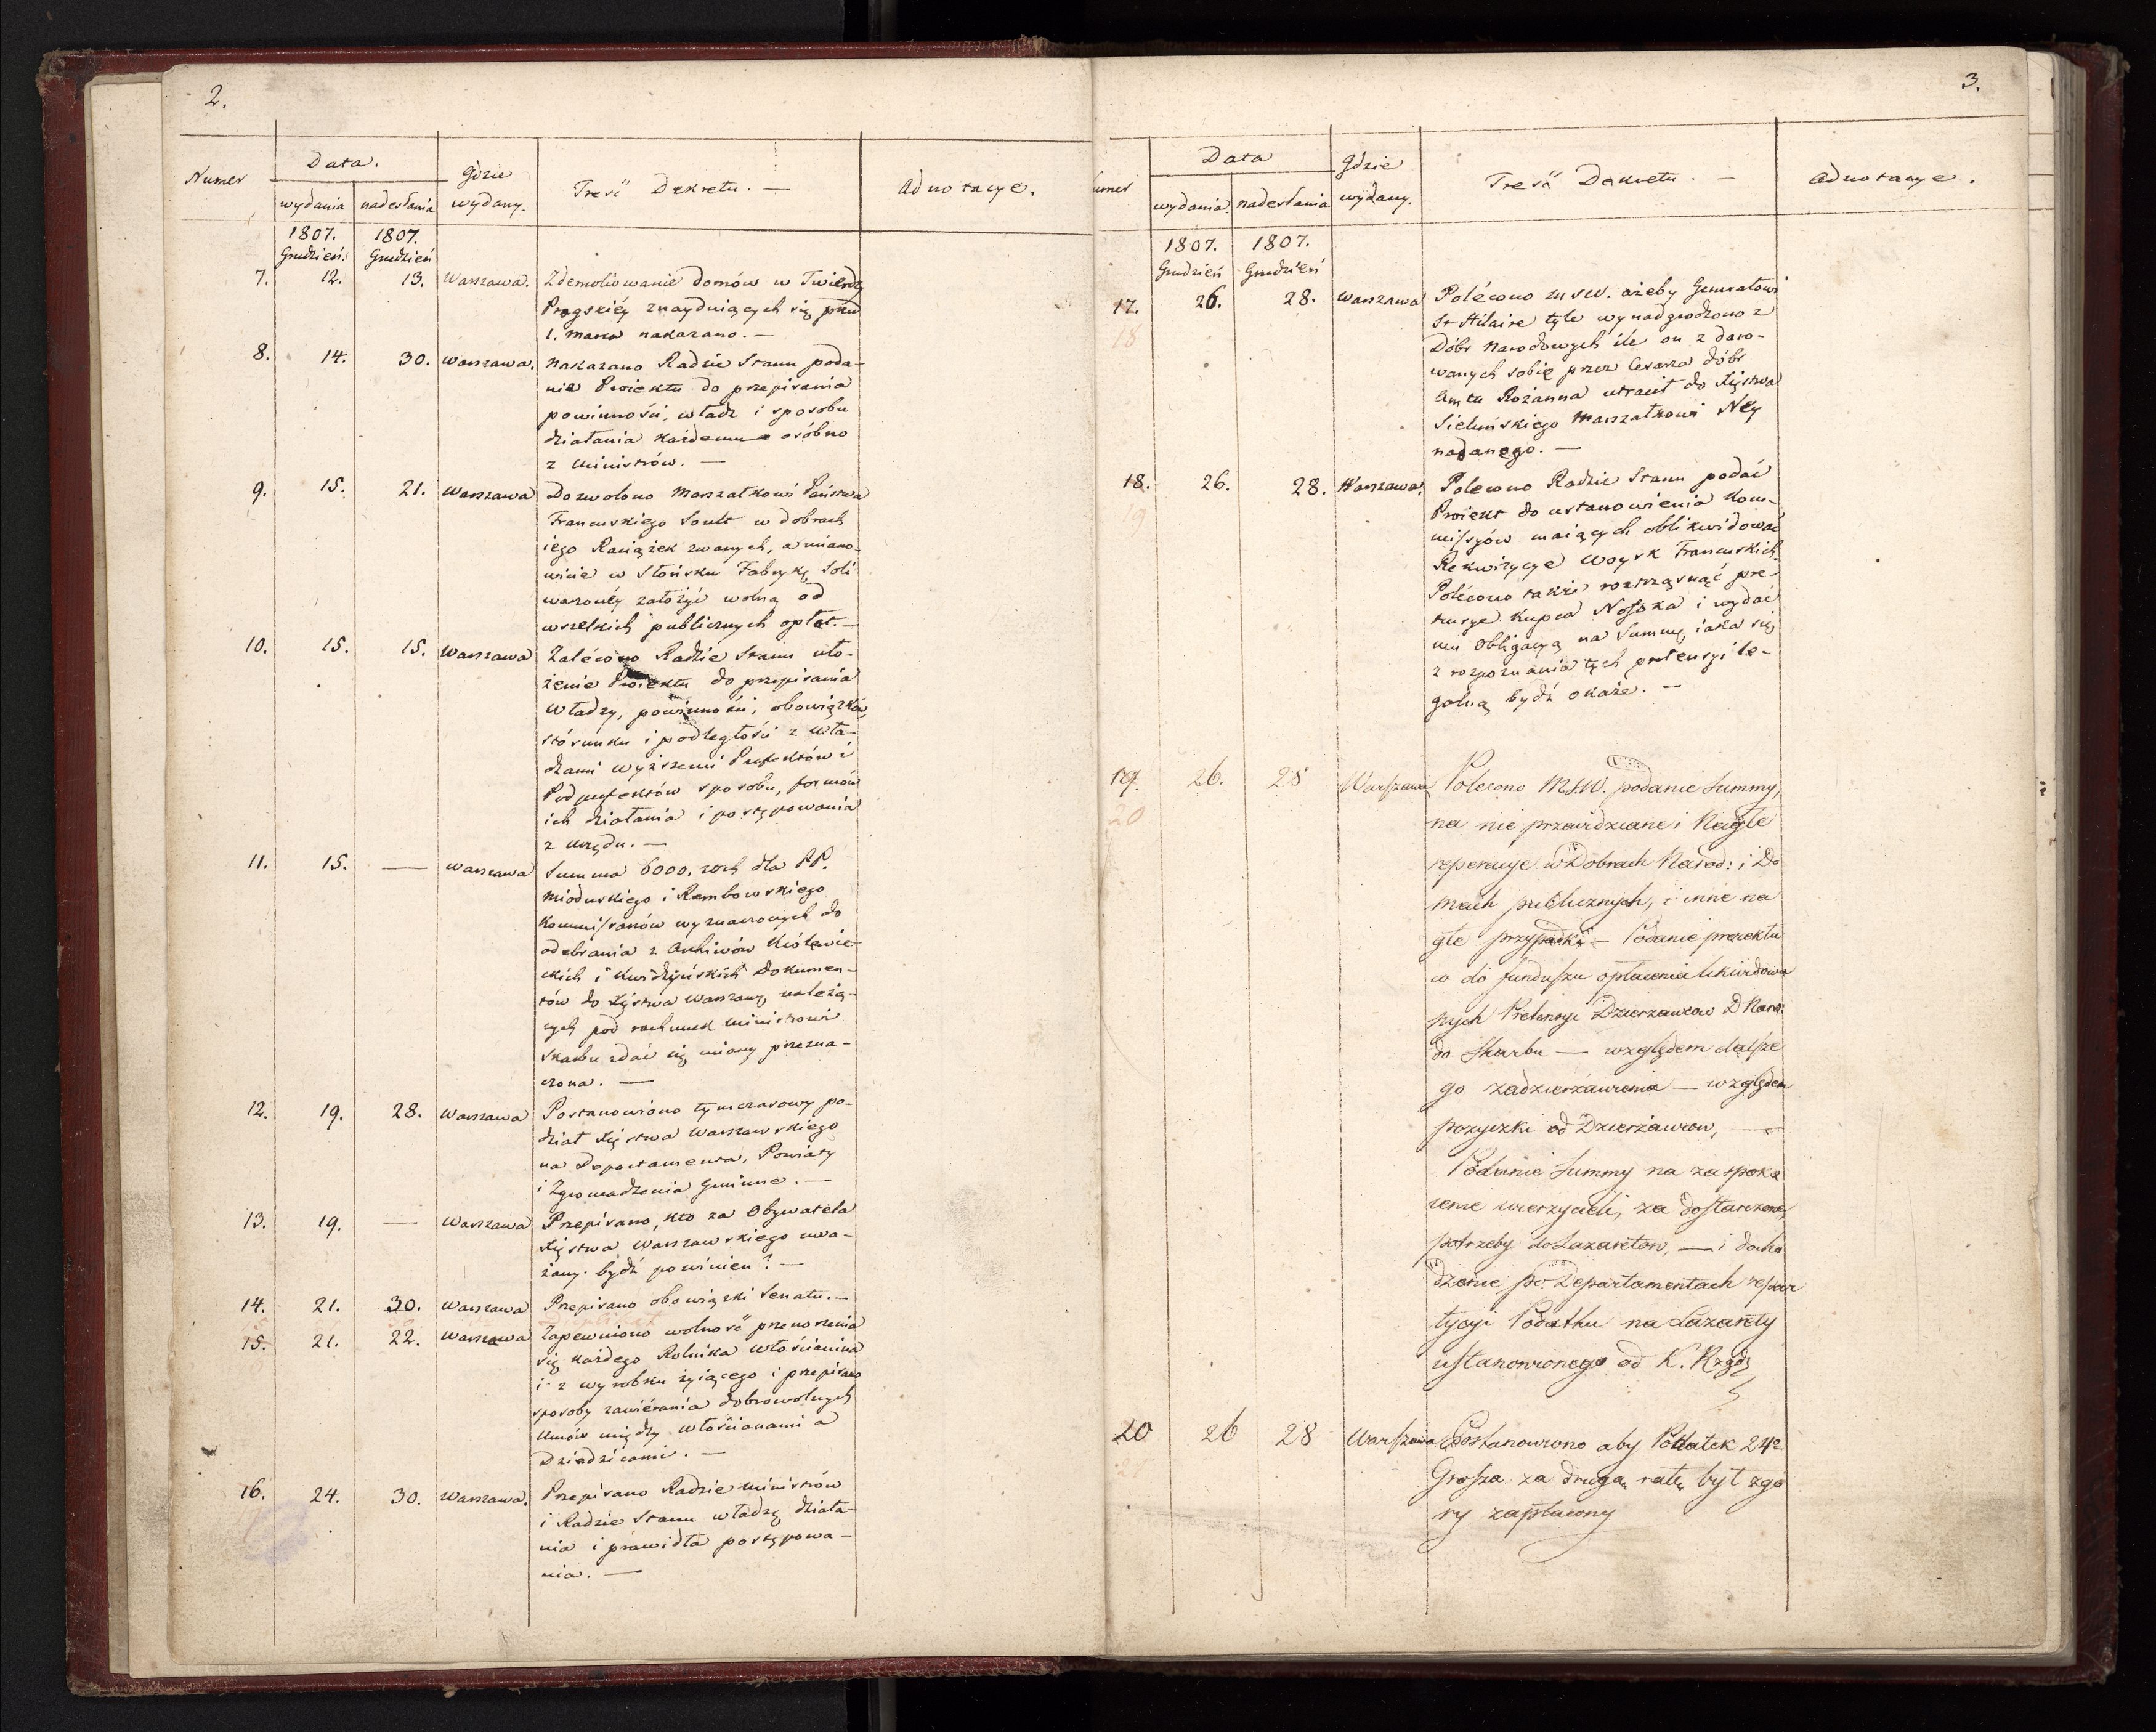 2.
Data.
Numer
Gdzie
wydany.
Treść Dekretu. —
Adnotacye.
wydania nadesłania
1807. 1807.
Grudzień. Grudzień
7. 12. 13. Warszawa. Zdemoliowanie domów w Twierdzy
Pragskiéy znayduiących się przed
1. Marca nakazano. —
8. 14. 30. Warszawa. Nakazano Radzie Stanu poda-
nie Proiektu do przepisania
powinności, władz i sposobu
działania każdemu osóbno
z Ministrów. —
9. 15. 21. Warszawa Dozwolono Marszałkowi Państwa
Francuskiego Soult w dobrach
iego Raciążek zwanych, a miano-
wicie w Słońsku Fabrykę Soli
warzonéy założyć wolną od
wszelkich publicznych opłat. —
10. 15. 15. Warszawa Zalécono Radzie Stanu uło-
żenie Proiektu do przepisania
Władzy, powinności, obowiązków,
stósunku i podległości z wła-
dzami wyższemi Prefektów i
Podprefektów sposobu, formów
ich działania i postępowania
z urzędu. —
11. 15. — Warszawa Summa 6000. złch dla PP.
Mioduskiego i Rembowskiego
Kommissarzów wyznaczonych do
odebrania z Archiwów Królewie-
ckich i Kwidzyńskich Dokumen-
tów do Xięstwa Warszaws, należą-
cych pod rachunek Ministrowi
Skarbu zdać się miany przezna-
czona. —
12. 19. 28. Warszawa Postanowiono tymczasowy po-
dział Xięstwa Warszawskiego
na Departamenta, Powiaty
i Zgromadzenia Gminne. —
13. 19. — Warszawa Przepisano, kto za Obywatela
Xięstwa Warszawskiego uwa-
żany bydź powinien? —
14. 21. 30. Warszawa Przepisano obowiązki Senatu. —
15. 21. 22. Warszawa Zapewniono wolność przenoszenia
się każdego Rolnika włościanina
i z wyrobku żyiącego i przepisano
sposoby zawiérania dobrowolnych
Umów między włościanami a
Dziedzicami. —
16. 24. 30. Warszawa. Przepisano Radzie Ministrów
i Radzie Stanu władzę działa-
nia i prawidła postępowa-
nia. —
3.
Data
umer
Gdzie
wydany.
Treść Dekretu. —
Adnotacye.
wydania. nadesłania
1807. 1807.
Grudzień Grudzień
17. 26. 28. Warszawa Polécono MSW. ażeby Generałowi
18
St Hilaire tyle wynadgrodzono z
Dóbr Narodowych ile on z daro-
wanych sobie przez Cesarza dóbr
Amtu Rożanna utracił do Xięstwa
Sieluńskiego Marszałkowi Ney
nadanego. —
18. 26. 28. Warszawa. Polecono Radzie Stanu podać
19
Proiekt do ustanowienia Kom-
missyów maiących oblikwidować
Rekwizycye Woysk Francuskich
Polécono także roztrząsnąć pre-
tensye Kupca Nosska i wydać
mu Obligacyą na Summę, iaka się
z rozpoznania tych pretensyi le-
galną bydź okaże. —
19. 26. 28 Warszawa Polecono MSW. podanie Summy,
20
na nie przewidziane i Nagłe
reperacye w Dobrach Narod: i Do
mach publicznych, i inne na
głe przypadki — Podanie proiektu
co do funduszu opłacenia likwidowa
nych Pretensyi Dzierżawcow D Naro:
do Skarbu — względem dalsze
go zadzierżawienia — względem
pożyczki od Dzierżawcow, —
Podanie Summy na zaspoko
ienie wierzycieli, za dostarczone,
potrzeby do Lazaretow, — i docho
dzenie po Departamentach repar
tycyi Podatku na Lazarety
ustanowionego od K. Rządz
20 26 28 Warszawa Postanowiono aby Podatek 24go
Grosza za drugą ratę był zgo
ry zapłacony